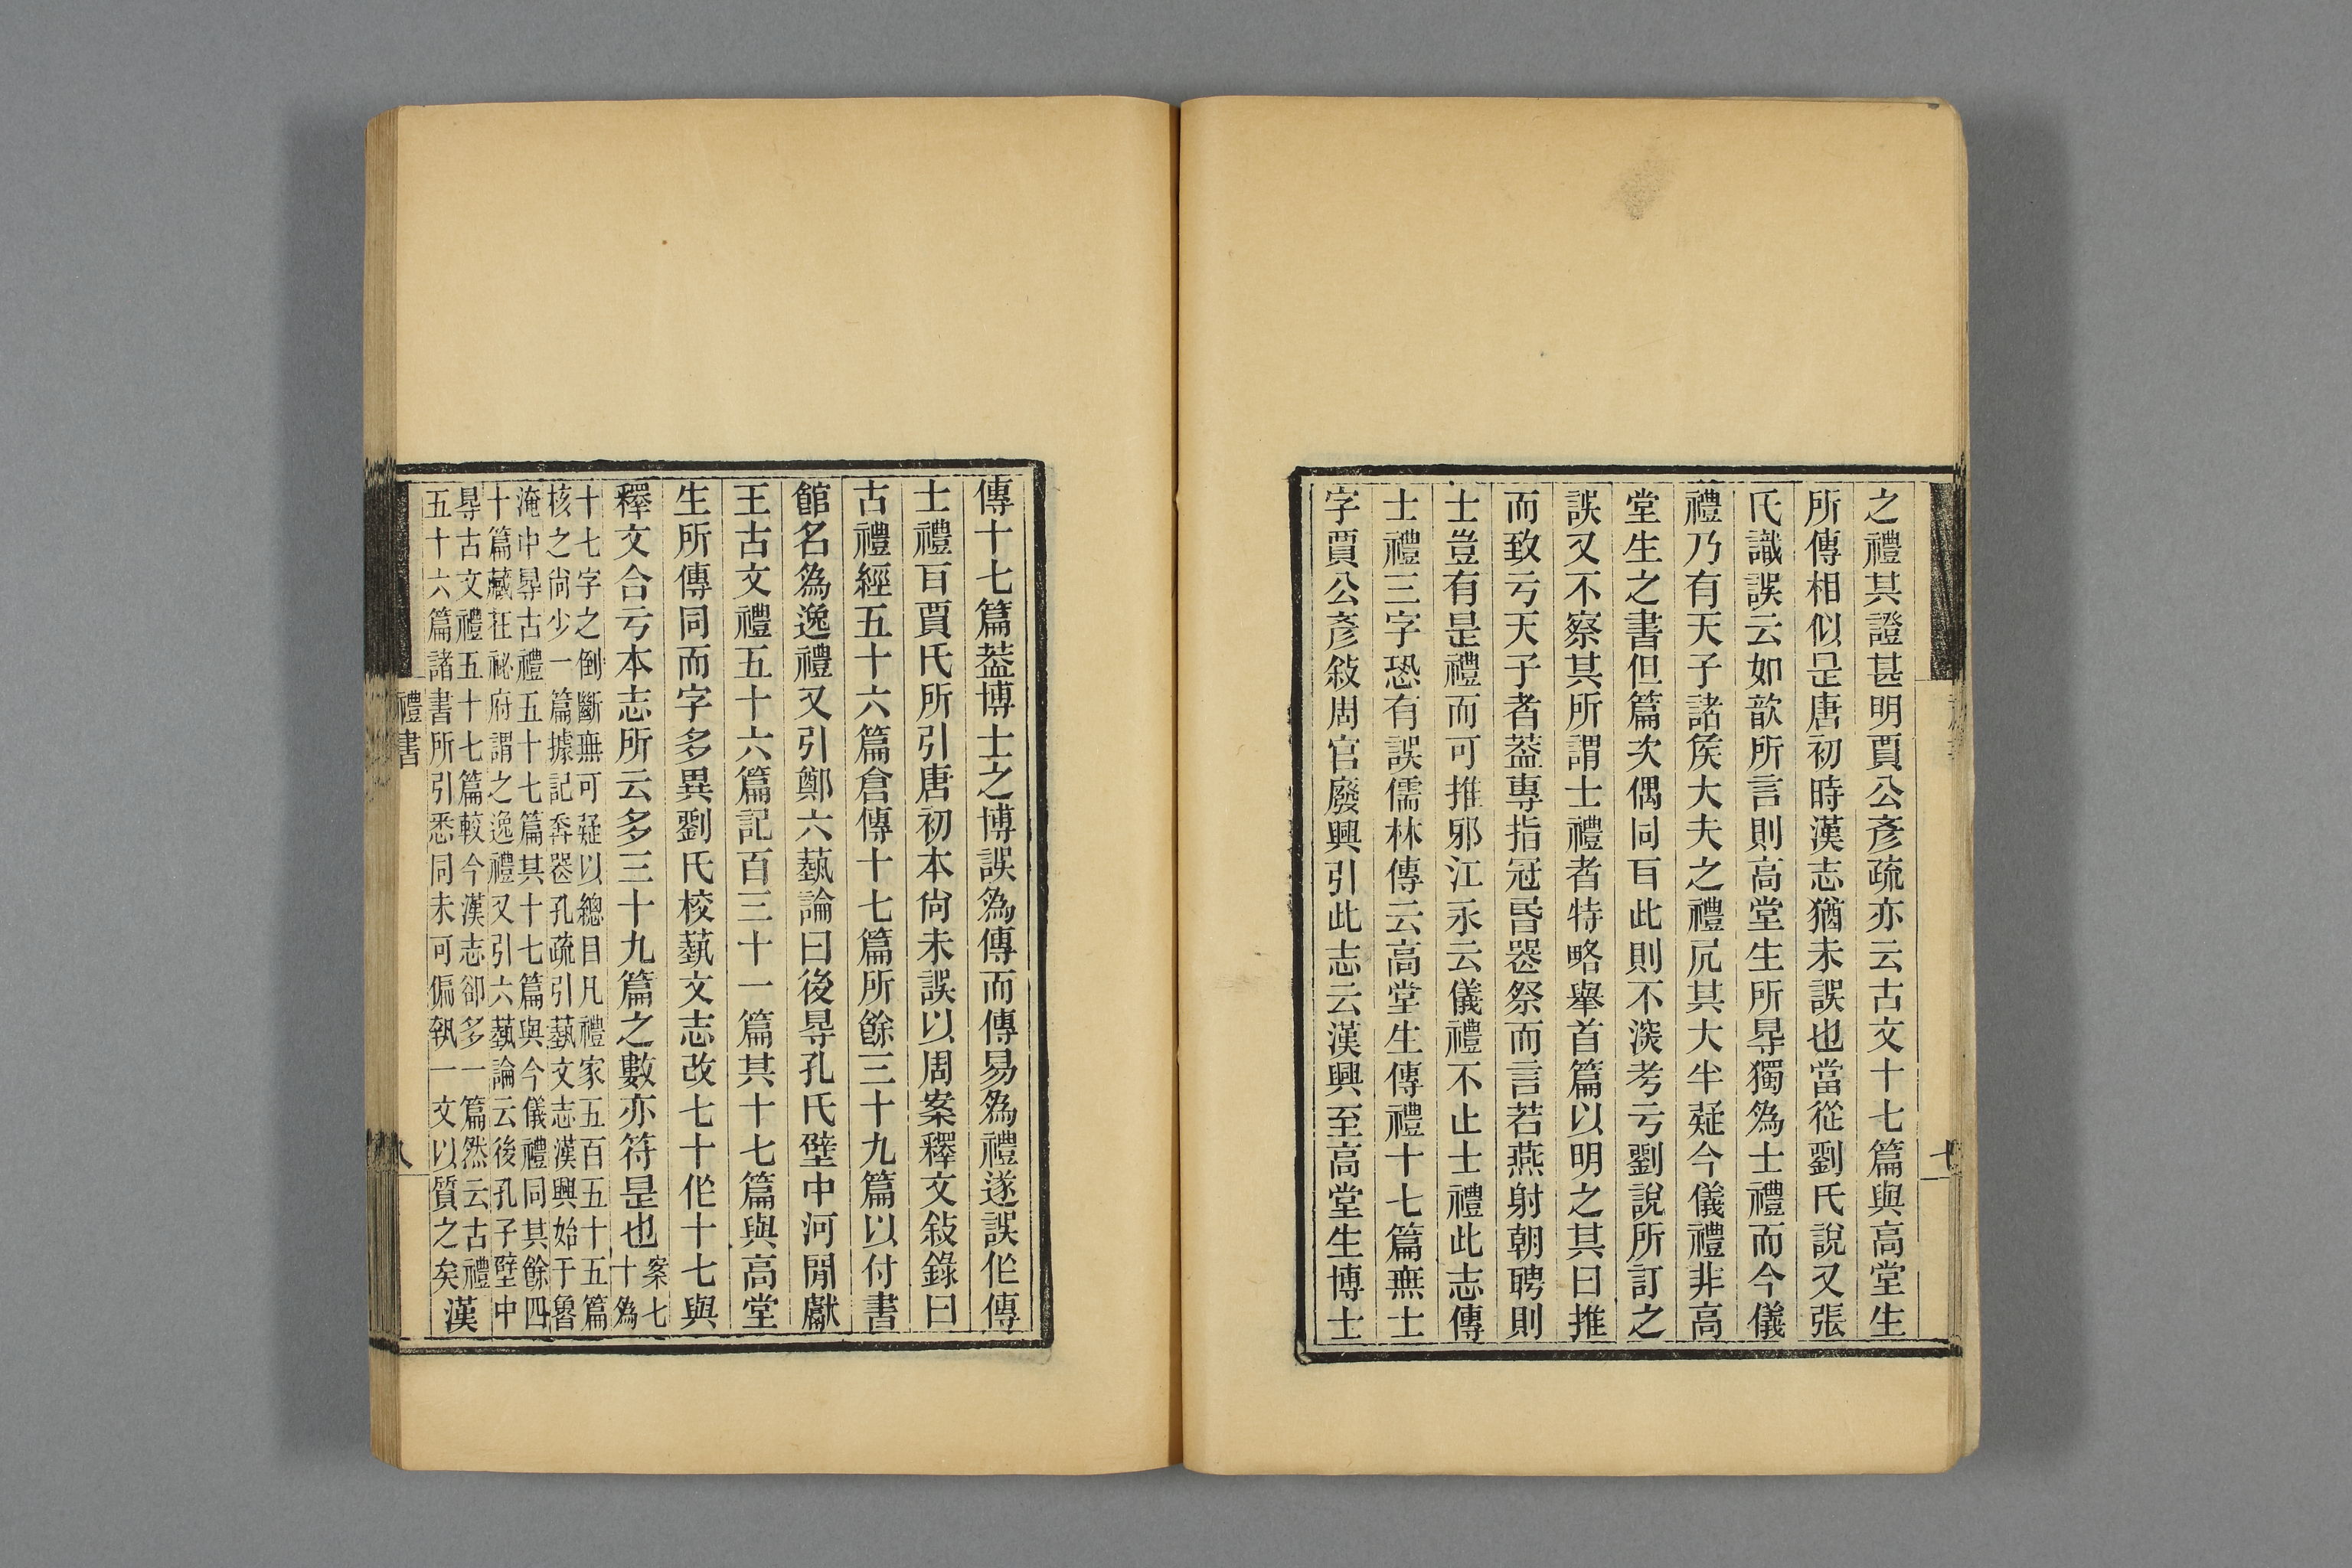 之禮其證甚明賈公彥疏亦云古文十七篇與高堂生
所傳相似是唐初時漢志猶未誤也當從劉氏說又張
氏識誤云如歆所言則高堂生所㝵獨爲士禮而今儀
禮乃有天子諸矦大夫之禮凥其大半疑今儀禮非高
堂生之書但篇次偶同百此則不深考亏劉說所訂之
誤又不察其所謂士禮者特略舉首篇以明之其曰推
而致亏天子者葢專指冠昏喪祭而言若燕射朝聘則
士豈有是禮而可推邪江永云儀禮不止士禮此志傳
士禮三字恐有誤儒林傳云高堂生傳禮十七篇無士
字賈公彥敍周官廢興引此志云漢興至高堂生博士
七
傳十七篇葢博士之博誤爲傳而傳易爲禮遂誤作傳
士禮百賈氏所引唐初本尙未誤以周案釋文敍錄曰
古禮經五十六篇倉傳十七篇所餘三十九篇以付書
館名爲逸禮又引鄭六藝論曰後㝵孔氏壁中河閒獻
王古文禮五十六篇記百三十一篇其十七篇與高堂
生所傳同而字多異劉氏校藝文志改七十作十七與
釋文合亏本志所云多三十九篇之數亦符是也案七
十爲
十七字之倒斷無可疑以總目凡禮家五百五十五篇
核之尙少一篇據記喪器孔疏引藝文志漢興始于魯
淹中㝵古禮五十七篇其十七篇與今儀禮同其餘四
十篇藏在祕府謂之逸禮又引六藝論云後孔子壁中
㝵古文禮五十七篇較今漢志卻多一篇然云古禮
五十六篇諸書所引悉同未可偏執一文以質之矣
漢
禮書
八